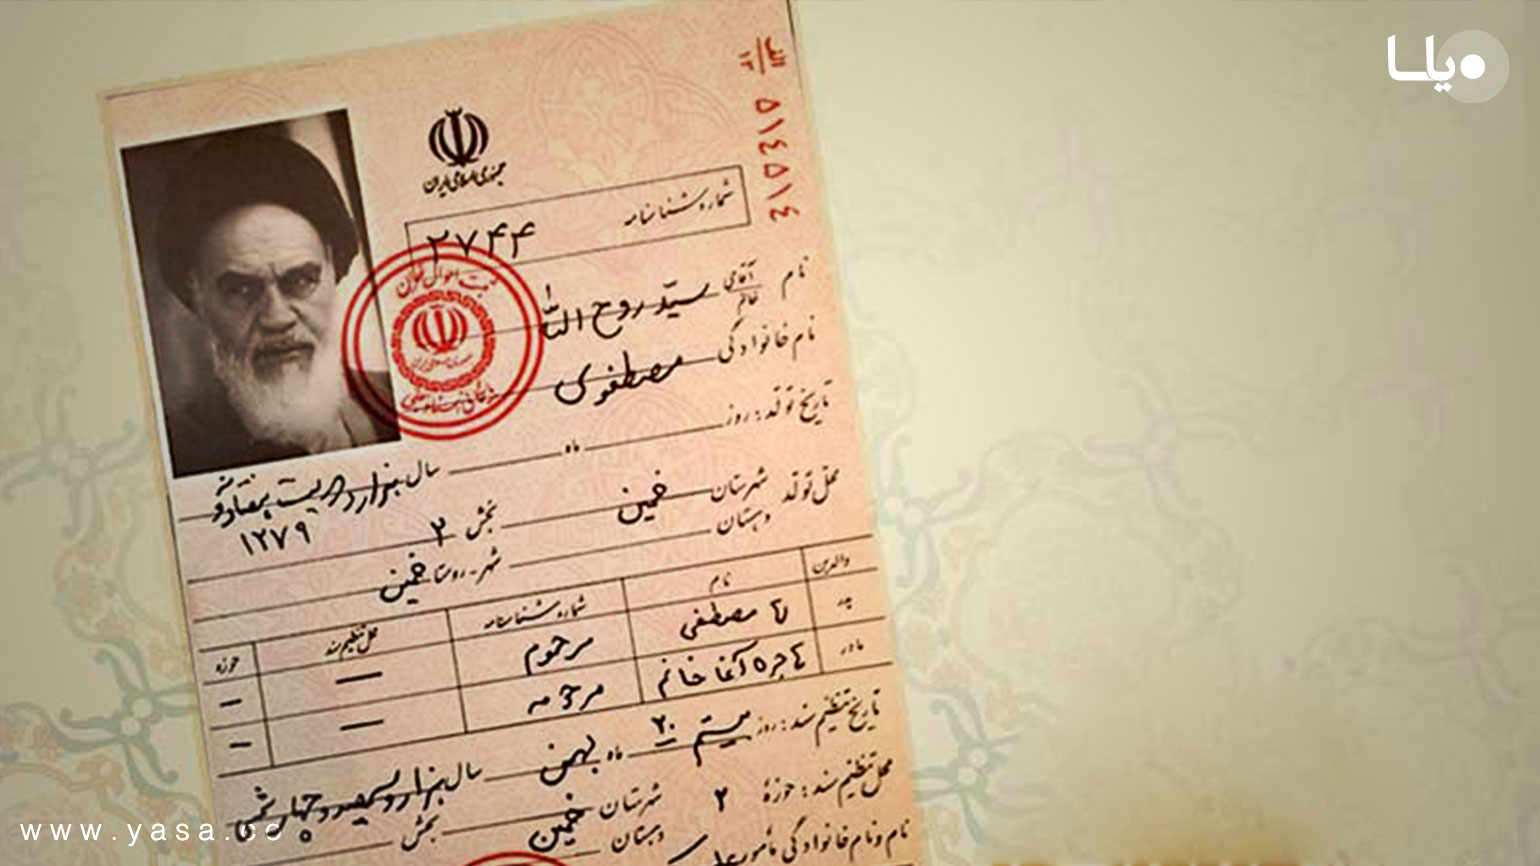 یاسا
الف/۱۳ ۵۱٤۵۱٤
جمهوری اسلامی ایران
شماره شناسنامه ۲۷۴۴
نام آقای خانم سیّد روح اللّه
نام خانوادگی مصطفوی
تاریخ تولد: روز ماه سال هزار و دویست هفتاد و نه
۱۲۷۹
محل تولد شهرستان خمین بخش ۲
دهستان شهر - روستا خمین
والدین نام شماره شناسنامه محل تنظیم سند حوزه
پدر مصطفی مرحوم — —
مادر هاجره آغا خانم مرحومه — —
تاریخ تنظیم سند: روز بیستم ۲۰ ماه بهمن سال هزار و سیصد و چهار شمسی
محل تنظیم سند: حوزهٔ ۲ شهرستان خمین بخش
دهستان
نام و نام خانوادگی مأمور
ثبت احوال
جمهوری اسلامی ایران
www.yasa.co